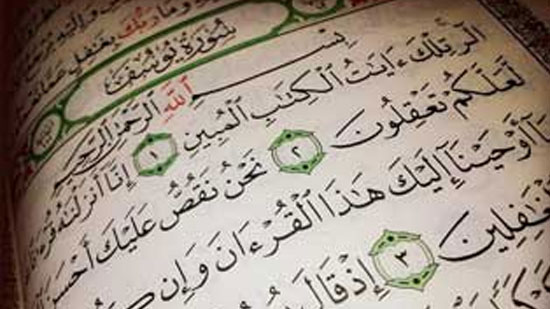 وَمَا رَبُّكَ بِغَٰفِلٍ عَمَّا
سُورَةُ يُوسُفَ
بِسْمِ ٱللَّهِ ٱلرَّحْمَٰنِ ٱلرَّحِيمِ
الٓر تِلْكَ ءَايَٰتُ ٱلْكِتَٰبِ ٱلْمُبِينِ ١ إِنَّآ أَنزَلْنَٰهُ
لَّعَلَّكُمْ تَعْقِلُونَ ٢ نَحْنُ نَقُصُّ عَلَيْكَ أَحْسَنَ
أَوْحَيْنَآ إِلَيْكَ هَٰذَا ٱلْقُرْءَانَ وَإِن
ٱلْغَٰفِلِينَ ٣ إِذْ قَالَ